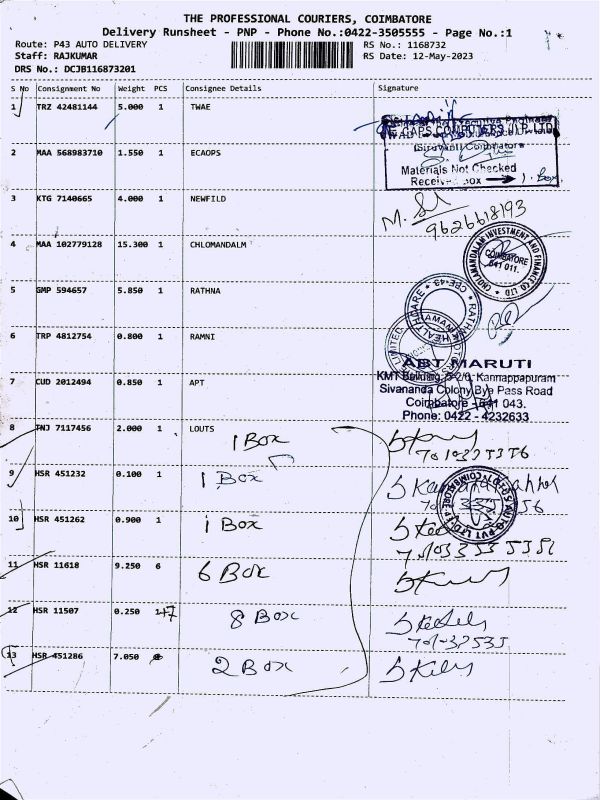 THE PROFESSIONAL COURIERS, COIMBATORE
Delivery Runsheet - PNP - Phone No.:0422-3505555 - Page No.:1
Route: P43 AUTO DELIVERY RS No.: 1168732
Staff: RAJKUMAR RS Date: 12-May-2023
DRS No.: DCJB116873201
S No Consignment No Weight PCS Consignee Details Signature
1 TRZ 42481144 5.000 1 TWAE
CAPS COMPUTERS (I) P LTD
(Siruvani) Coimbatore
2 MAA 568983710 1.550 1 ECAOPS
Materials Not Checked
Received Box → 1. Box
3 KTG 7140665 4.000 1 NEWFILD
M.
9626618193
4 MAA 102779128 15.300 1 CHLOMANDALM
CHOLAMANDALAM INVESTMENT AND FINANCE CO. LTD
COIMBATORE
641 011.
5 GMP 594657 5.850 1 RATHNA
RATHNA HEALTHCARE CBE-43
6 TRP 4812754 0.800 1 RAMNI
LIMITED
7 CUD 2012494 0.850 1 APT
ABT MARUTI
KMT Building, Kannappapuram
Sivananda Colony Bye Pass Road
Coimbatore - 641 043.
Phone: 0422 - 4232633
8 TNJ 7117456 2.000 1 LOUTS
1 Box
9 HSR 451232 0.100 1 1 Box
10 HSR 451262 0.900 1 1 Box
11 HSR 11618 9.250 6 6 Box
12 HSR 11507 0.250 8 Box
13 HSR 451286 7.050 2 Box